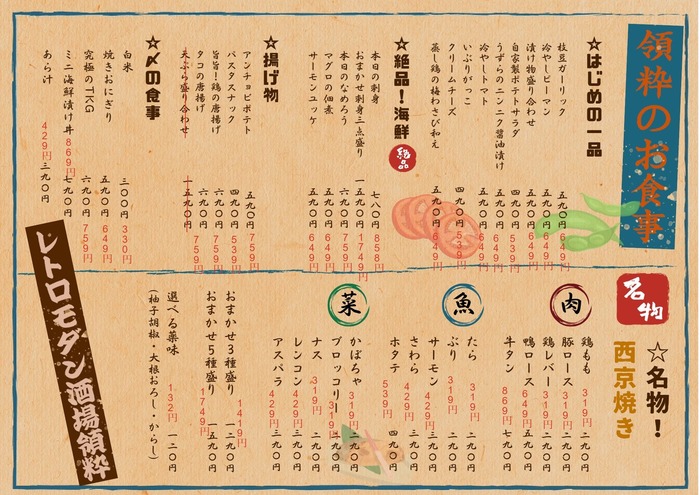 領粋のお食事
☆はじめの一品
枝豆ガーリック 五九〇円 649円
冷やしピーマン 五九〇円 649円
漬け物盛り合わせ 五九〇円 649円
自家製ポテトサラダ 四九〇円 539円
うずらのニンニク醤油漬け 五九〇円 649円
冷やしトマト 五九〇円 649円
いぶりがっこ
クリームチーズ 四九〇円 539円
蒸し鶏の梅わさび和え 五九〇円 649円
☆絶品!海鮮 絶品
本日の刺身 七八〇円 858円
おまかせ刺身三点盛り 一五九〇円 1749円
本日のなめろう 六九〇円 759円
マグロの佃煮 五九〇円 649円
サーモンユッケ 五九〇円 649円
☆揚げ物
アンチョビポテト 759円
パスタスナック 四九〇円 539円
旨旨!鶏の唐揚げ 六九〇円 759円
タコの唐揚げ 六九〇円 759円
天ぷら盛り合わせ 一五九〇円
☆〆の食事
白米 三〇〇円 330円
焼きおにぎり 五九〇円 649円
究極のTKG 六九〇円 759円
ミニ海鮮漬け丼 869円 七九〇円
あら汁 429円 三九〇円
名物
☆名物!
西京焼き
肉
鶏もも 319円 二九〇円
豚ロース 319円 二九〇円
鶏レバー 319円 二九〇円
鴨ロース 649円 五九〇円
牛タン 869円 七九〇円
魚
たら 319円 二九〇円
ぶり 319円 二九〇円
サーモン 429円 三九〇円
さわら 429円 三九〇円
ホタテ 539円 四九〇円
菜
かぼちゃ 319円 二九〇円
ブロッコリー 319円 二九〇円
ナス 319円 二九〇円
レンコン 429円 三九〇円
アスパラ 429円 三九〇円
おまかせ3種盛り 1419円 一二九〇円
おまかせ5種盛り 1749円 一五九〇円
選べる薬味 132円 一二〇円
(柚子胡椒・大根おろし・からし)
レトロモダン酒場領粋